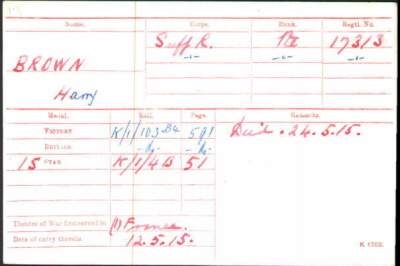 Name. Corps. Rank. Regtl. No.
BROWN Suff R. Pte 17313
Harry -"- -"- -"-
Medal. Roll. Page. Remarks.
VICTORY K/1/103.B4 591 Died . 24.5.15.
BRITISH -do- -do-
15 STAR K/1/4B 51
Theatre of War first served in (1) France.
Date of entry therein 12.5.15.
K. 1380.